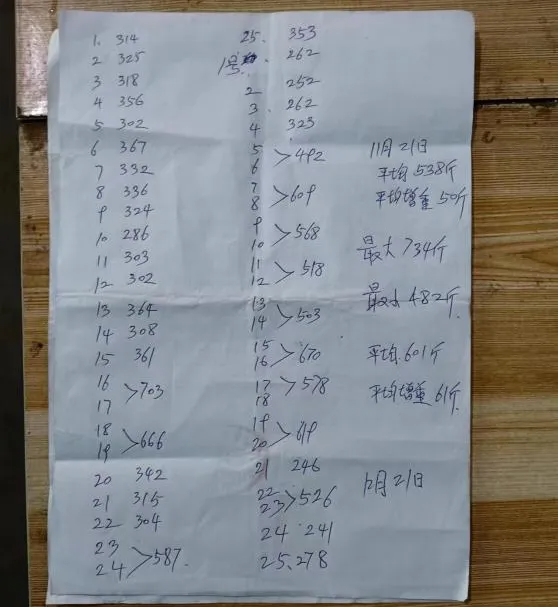 1. 314
2 325
3 318
4 356
5 302
6 367
7 332
8 336
9 324
10 286
11 303
12 302
13 364
14 308
15 361
16
17 >703
18
19 >666
20 342
21 315
22 304
23
24 >587.
25. 353
1号. 262
2 252
3. 262
4 323
5
6 >492
7
8 >609
9
10 >568
11
12 >518
13
14 >503
15
16 >670
17
18 >578
19
20 >619
21 246
22
23 >526
24 241
25.278
11月21日
平均538斤
平均增重50斤
最大734斤
最小482斤.
平均.601斤
平均增重61斤.
12月21日